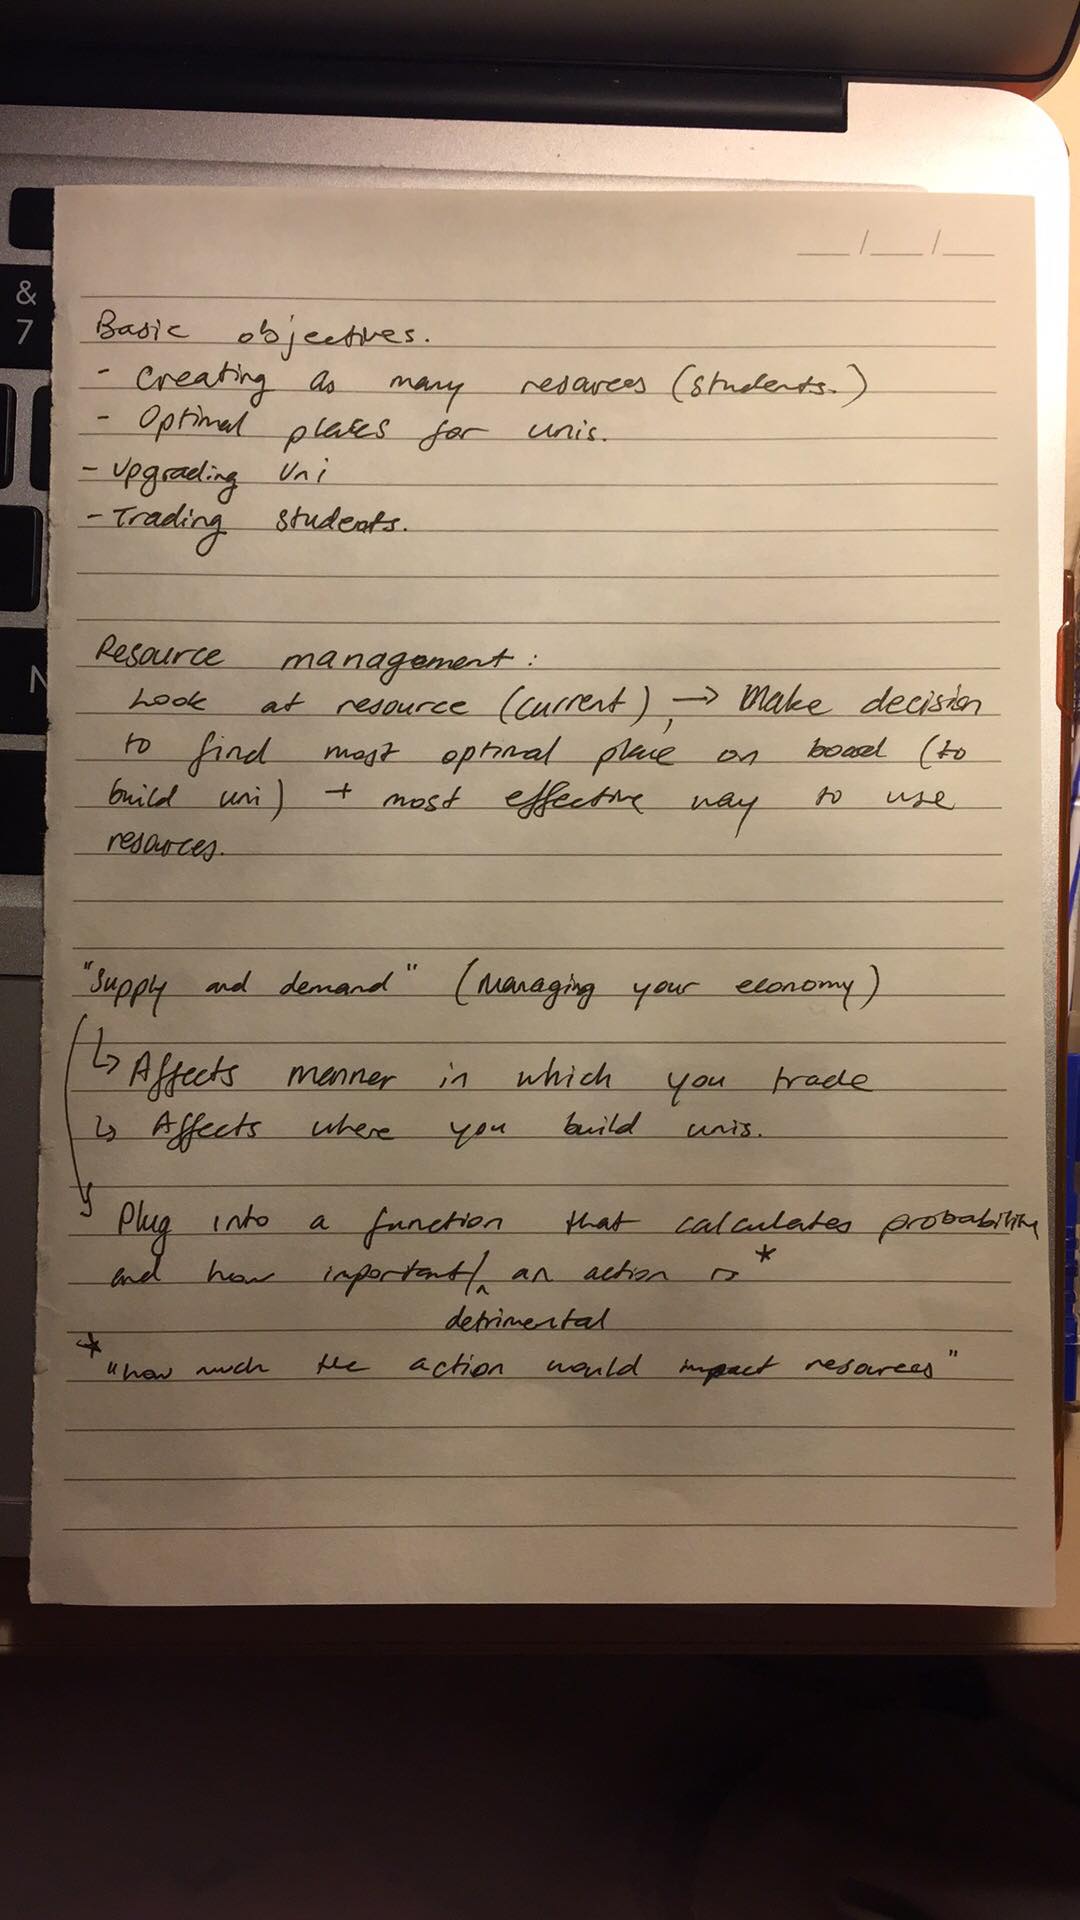 &
7
N
__/__/__
Basic objectives.
- Creating as many resources (students.)
- Optimal places for unis.
- Upgrading Uni
- Trading students.
Resource management:
Look at resource (current), → Make decision
to find most optimal place on board (to
build uni) + most effective way to use
resources.
"Supply and demand" (Managing your economy)
↳ Affects manner in which you trade
↳ Affects where you build unis.
↳ Plug into a function that calculates probability
and how important/^ an action is *
detrimental
* "how much the action would impact resources"